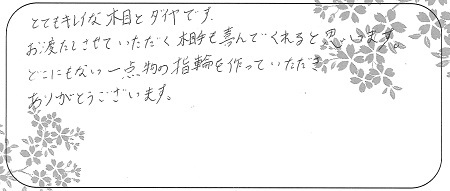 とてもキレイな木目とダイヤです.
お渡しさせていただく相手も喜んでくれると思います。
どこにもない一点物の指輪を作っていただき
ありがとうございます。